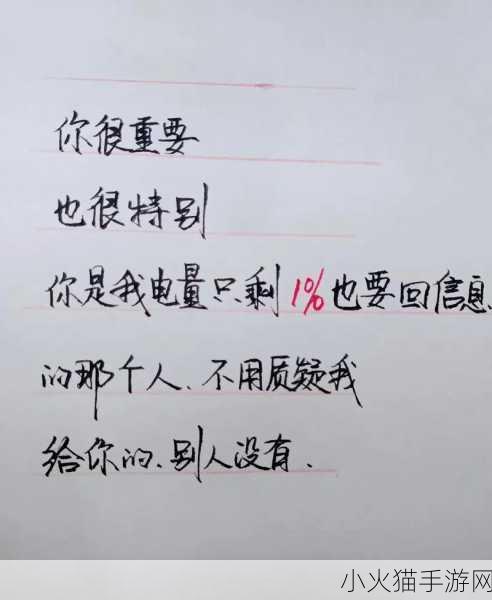 你很重要
也很特别
你是我电量只剩1%也要回信息
的那个人、不用质疑我
给你的、别人没有.
小火猫手游网